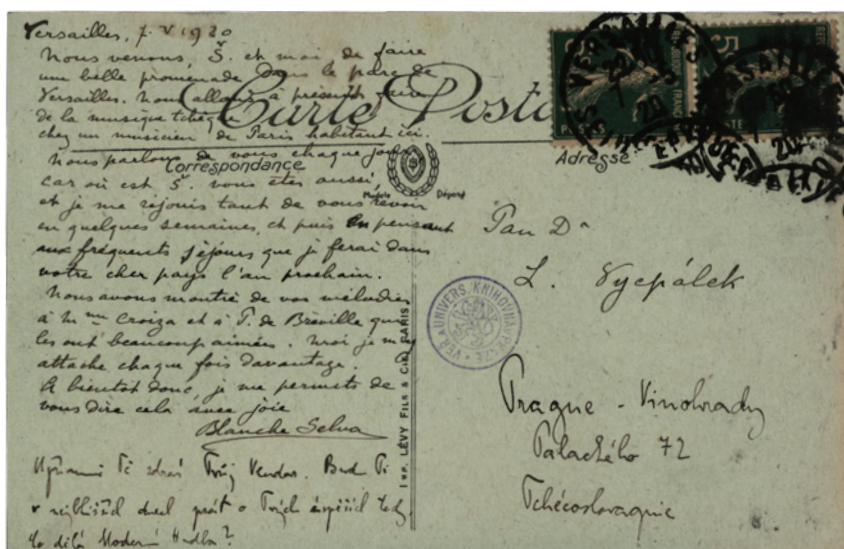 Versailles, 7 V 1920
Nous venons, Š. et moi de faire
une belle promenade dans le parc de
Versailles. Nous allons à présent faire
de la musique tchèque
chez un musicien de Paris habitant ici.
Nous parlons de vous chaque jour
car où est Š. vous êtes aussi,
et je me réjouis tant de vous revoir
en quelques semaines, et puis en pensant
aux fréquents séjours que je ferai dans
votre cher pays l'an prochain.
Nous avons montré de vos mélodies
à Mme Croiza et à P. de Bréville qui
les ont beaucoup aimées. Moi je m'y
attache chaque fois davantage.
A bientôt donc, je me permets de
vous dire cela avec joie
Blanche Selva
Tě zdraví Tvůj Bud Ti
v dnech psát o Tvých
Co dělá Moderní Hudba?
Carte Postale
Correspondance
Adresse
Modèle Déposé
VERSAILLES
5
Pan Dr
L. Vycpálek
Prague - Vinohrady
Palackého 72
Tchécoslovaquie
IMP. LÉVY FILS & CIE PARIS
UNIVERS. KNIHOVNA V PRAZE